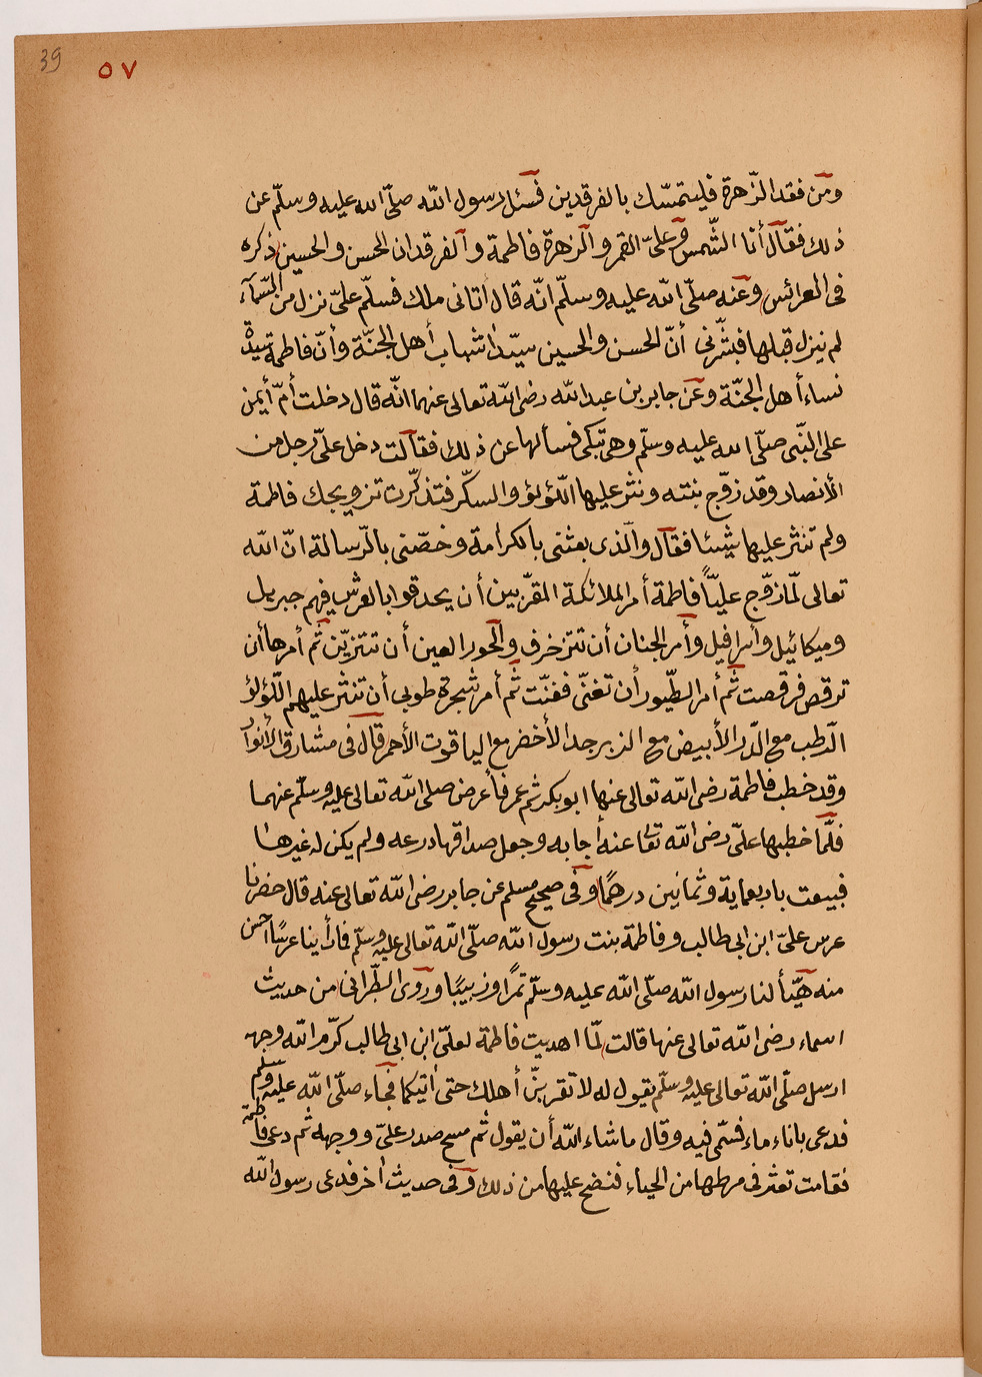 39
٥٧
ومن فقد الزّهرة فليتمسّك بالفرقدين فسئل رسول الله صلّى الله عليه وسلّم عن
ذلك فقال أنا الشّمس وعلىّ القمر والزهرة فاطمة والفرقدان الحسن والحسين ذكره
فى العرائس وعنه صلّى الله عليه وسلّم انّه قال أتانى ملك فسلّم علىّ نزل من السّمآء
لم ينزل قبلها فبشّرنى أنّ الحسن والحسين سيّدا شباب أهل الجنّة وأنّ فاطمة سيدة
نساء أهل الجنّة وعن جابر بن عبد الله رضى الله تعالى عنهما انّه قال دخلت أمّ أيمن
على النّبى صلّى الله عليه وسلّم وهى تبكى فسألها عن ذلك فقالت دخل علىّ رجل من
الأنصار وقد زوّج بنته ونثر عليها اللّؤلؤ والسكّر فتذكّرت تزويجك فاطمة
ولم تنثر عليها شيئا فقال والّذى بعثنى بالكرامة وخصّنى بالرّسالة انّ الله
تعالى لمّا زوّج عليّاً فاطمة أمر الملائكة المقرّبين أن يحدقوا بالعرش فيهم جبريل
وميكائيل وأسرافيل وأمر الجنان أن تتزخرف والحور العين أن تتزيّن ثم أمرها أن
ترقص فرقصت ثم أمر الطّيور أن تغنّى فغنّت ثم أمر شجرة طوبى أن تنثر عليهم اللّؤلؤ
الرّطب مع الدّرّ الأبيض مع الزبرجد الأخضر مع الياقوت الأحمر قال فى مشارق الأنوار
وقد خطب فاطمة رضى الله تعالى عنها ابو بكر ثم عمر فأعرض صلى الله تعالى عليه وسلّم عنهما
فلمّا خطبها علىّ رضى الله تعالى عنه أجابه وجعل صداقها درعه ولم يكن له غيرها
فبيعت باربعماية وثمانين درهمًا وفى صحيح مسلم عن جابر رضى الله تعالى عنه قال حضرنا
عرس علىّ ابن ابى طالب وفاطمة بنت رسول الله صلّى الله تعالى عليه وسلّم فما رأينا عرسًا احسن
منه هيّأ لنا رسول الله صلّى الله عليه وسلّم تمرًا وزبيبًا وروى الطّبرانى من حديث
اسماء رضى الله تعالى عنها قالت لمّا اهديت فاطمة لعلىّ ابن ابى طالب كرّم الله وجهه
ارسل صلّى الله تعالى عليه وسلّم يقول له لا تقربنّ أهلك حتى أتيكما فجاء صلّى الله عليه وسلّم
فدعى باناء ماء فسمّى فيه وقال ماشاء الله أن يقول ثم مسح صدر علىّ ووجهه ثم دعى فاطمة
فقامت تعثر فى مرطها من الحياء فنضح عليها من ذلك وفى حديث أخر فدعى رسول الله